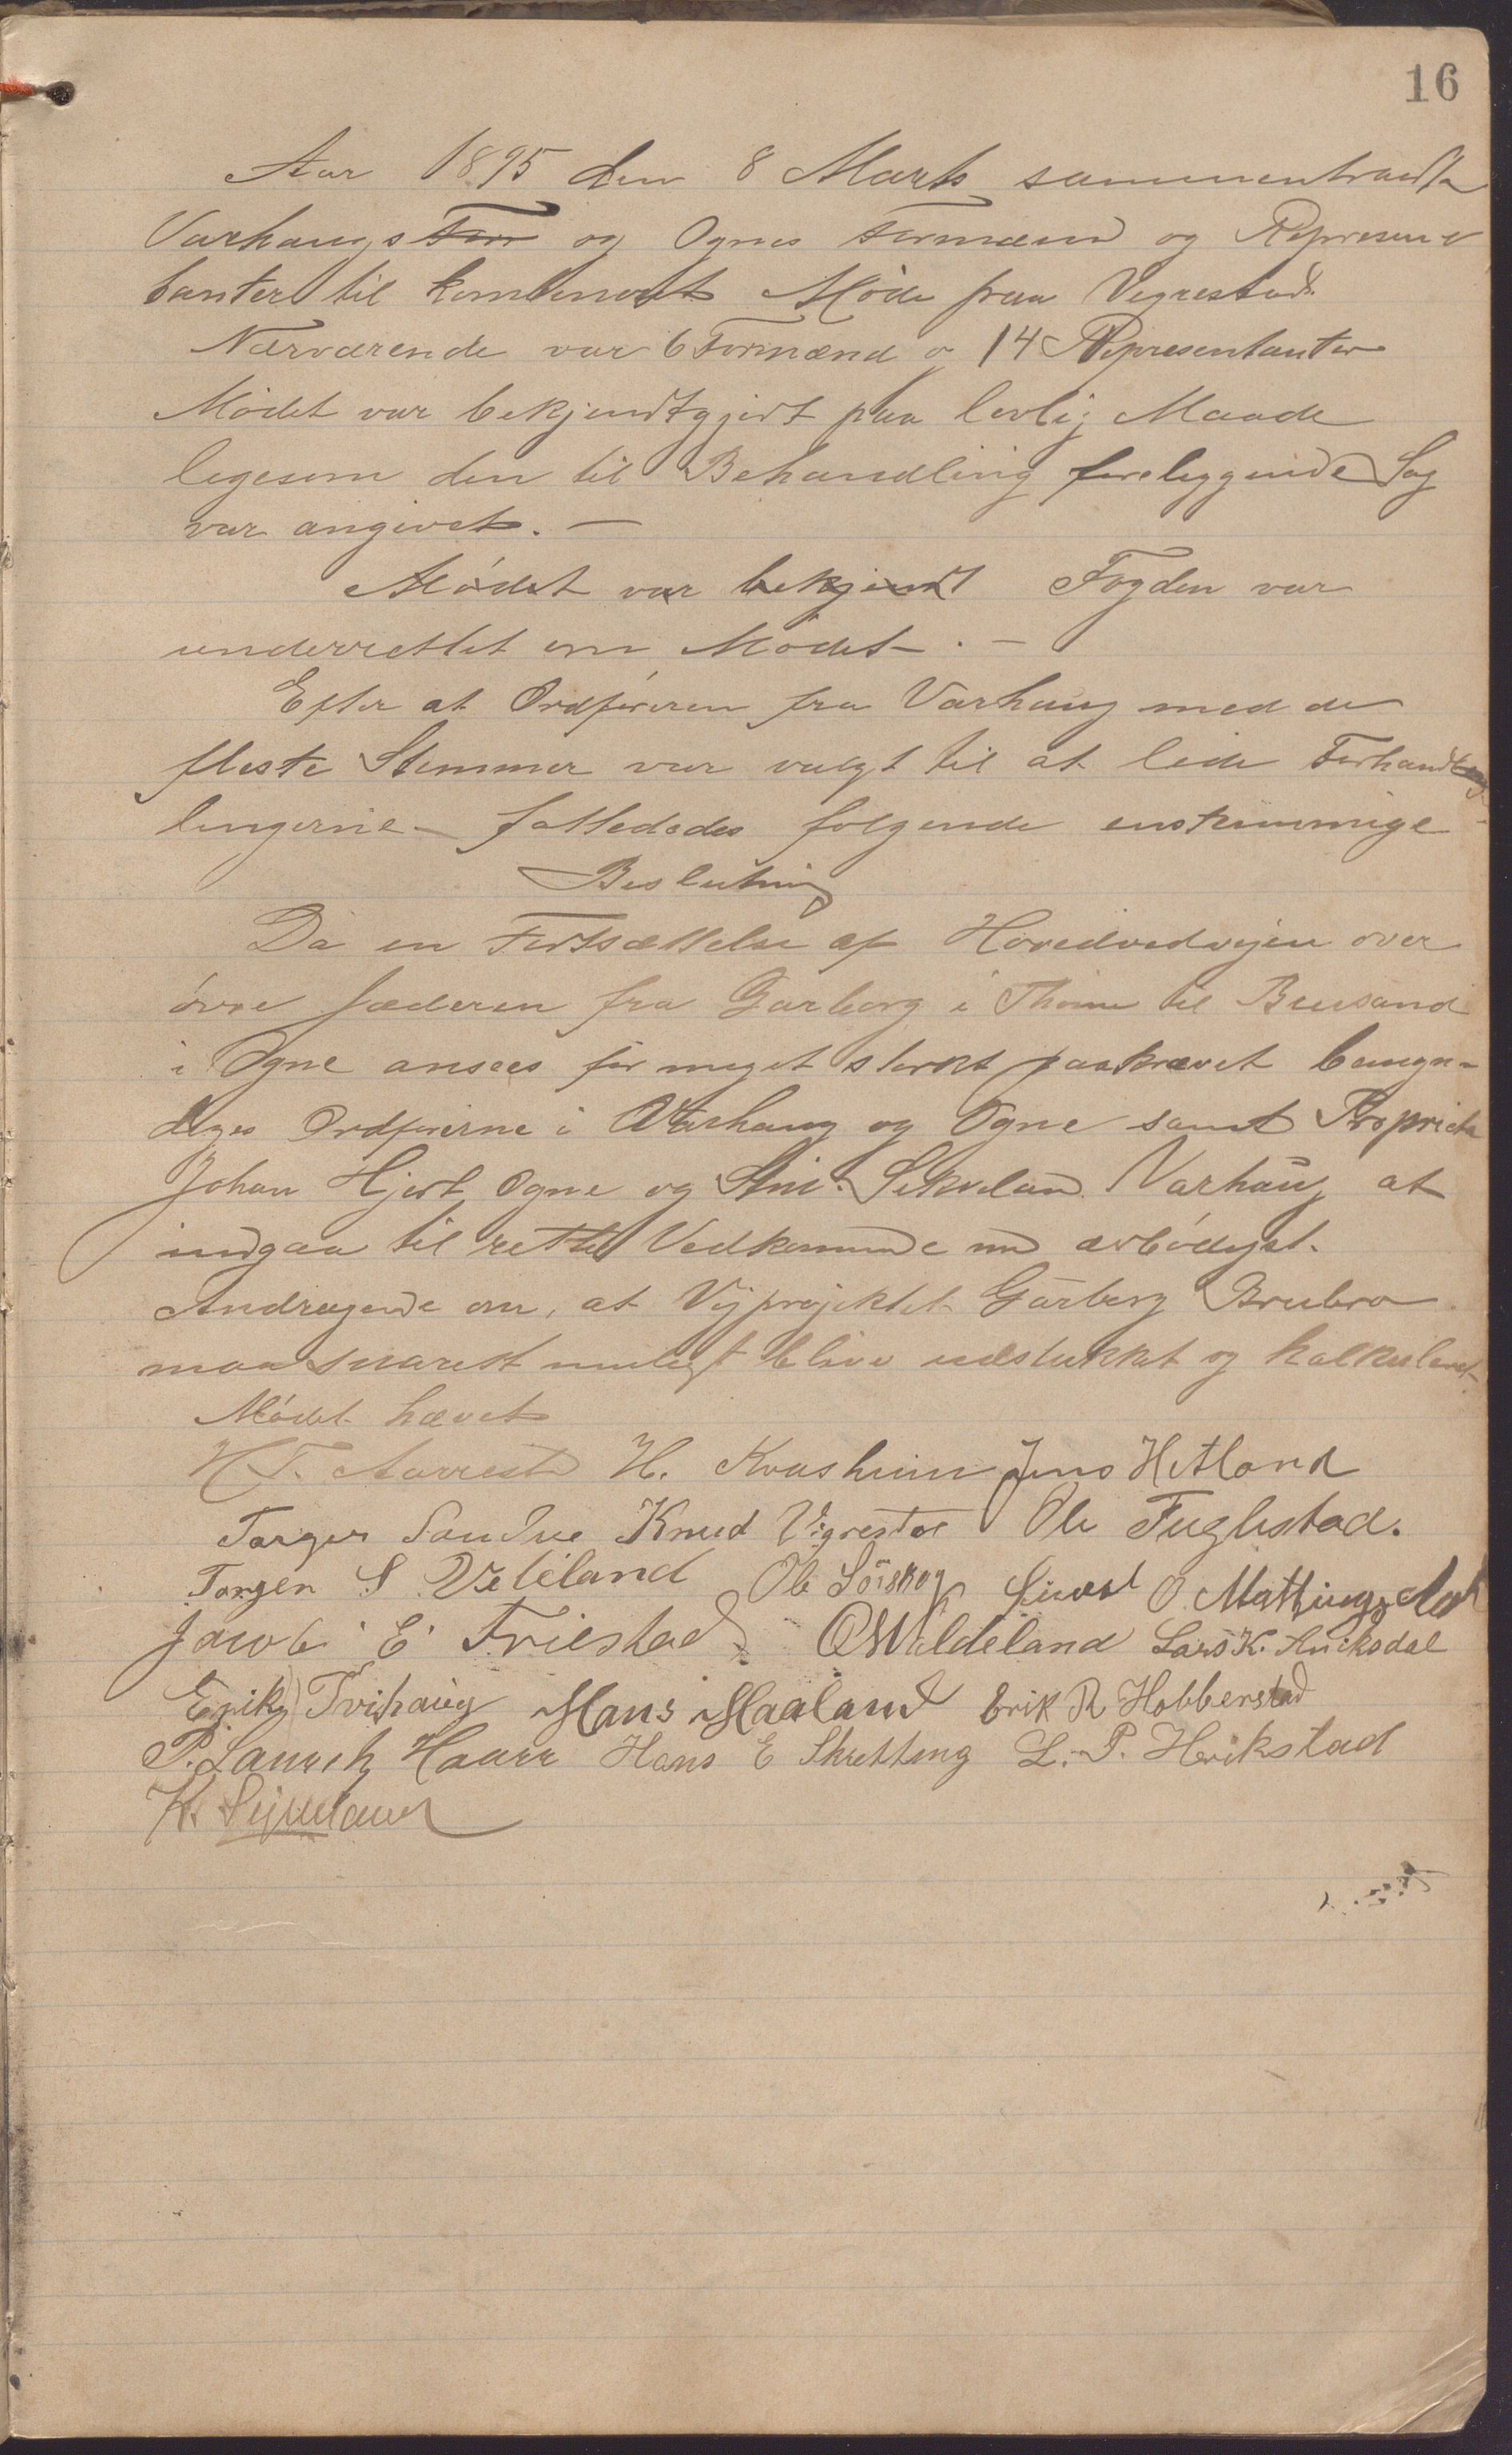 16
Aar 1895 den 8 Marts sammentraadte
Varhaugs For og Ognes Formænd og Represen-
tanter til kombineret Møde paa Vigrestad.
Nærværende var 6 Formænd og 14 Representanter
Mødet var bekjendtgjort paa lovlig Maade
ligesom den til Behandling foreliggende Sag
var angivet. —
Mødet var bekjendt Fogden var
underrettet om Mødet. —
Efter at Ordføreren fra Varhaug med de
fleste Stemmer var valgt til at lede Forhand
lingerne fattededes følgende enstemmige
Beslutning
Da en Fortsættelse af Hovedvedvejen over
øvre Jæderen fra Garborg i Thime til Brusand
i Ogne ansees for meget sterkt paakrævet bemyn-
diges Ordførerne i Varhaug og Ogne samt Proprietæ
Johan Hjort, Ogne og Varhaug at
indgaa til rette Vedkommende med ærbødigst.
Andragende om, at Vejprojektet Garborg Brubro
maa snarest muligt blive udstukket og kalkuleret.
Mødet hævet
H. T. Aarrestad H. Kvasheim Jens Hetland
Torger Sandve Knud Vigrestad Ole Fuglestad.
Torgen S Vedeland Ole Sørskog Sivert O. Mattingsdal
Jacob E. Friestad O W Ueldeland Lars K. Aniksdal
Erik Tvihaug Hans Maaland Erik R Hobberstad
P. Lauritz Haarr Hans E Skretting L. P. Herikstad
K.